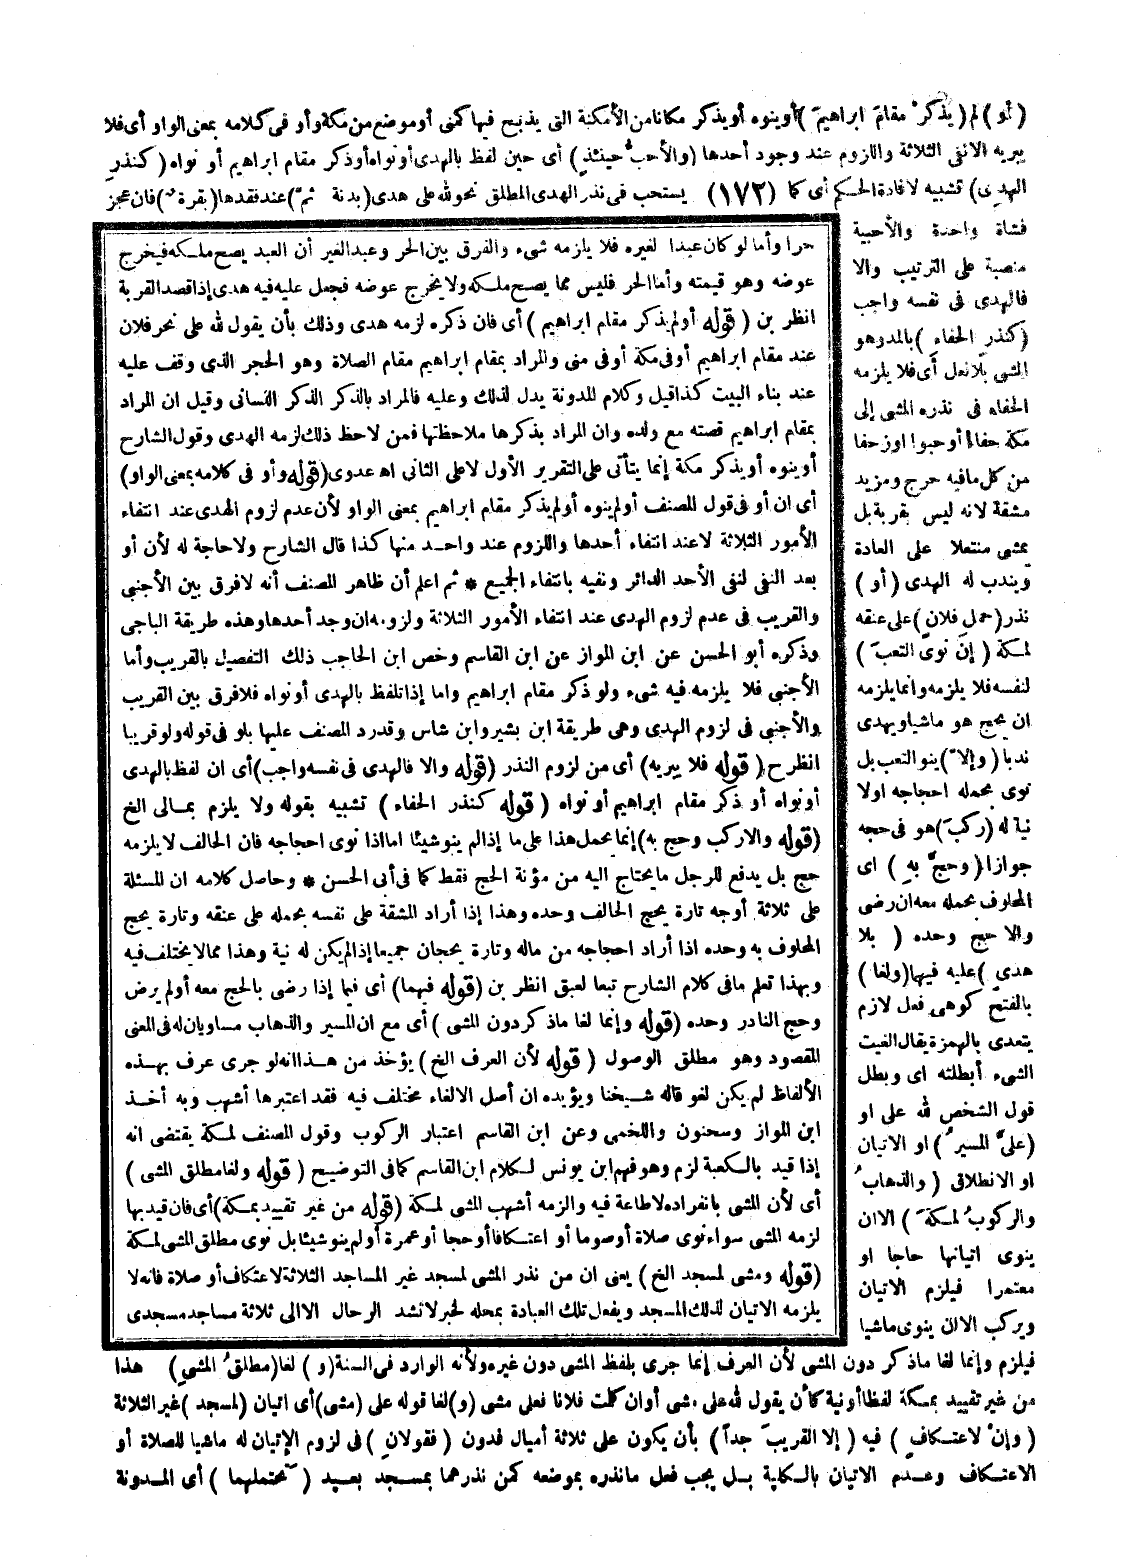 (أو) لم (يذكر مقام ابراهيم) أوينوه أويذكر مكانا من الأمكنة التى يذبح فيها كمنى أوموضع من مكة وأو فى كلامه بمعنى الواو أى فلا
يبريه الانفى الثلاثة واللزوم عند وجود أحدها (والأحب حينئذ) أى حين لفظ بالهدى أونواه أوذكر مقام ابراهيم أو نواه (كنذر
الهدى) تشبيه لافادة الحكم أى كما (١٧٢) يستحب فى نذر الهدى المطلق نحو لله على هدى (بدنة ثم) عند فقدها (بقرة) فان عجز
فشاة واحدة والأحبية
منصبة على الترتيب والا
فالهدى فى نفسه واجب
(كنذر الحفاء) بالمد وهو
المشى بلا نعل أى فلا يلزمه
الحفاء فى نذره المشى إلى
مكة حفاء أوحبوا اوزحفا
من كل مافيه حرج ومزيد
مشقة لانه ليس بقربة بل
يمشى منتعلا على العادة
ويندب له الهدى (أو)
نذر (حمل فلان) على عنقه
لمكة (إن نوى التعب)
لنفسه فلا يلزمه وانما يلزمه
ان يحج هو ماشيا ويهدى
ندبا (وإلا) ينو التعب بل
نوى بحمله احجاجه اولا
نية له (ركب) هو فى حجه
جوازا (وحج به) اى
المحلوف بحمله معه ان رضى
والا حج وحده (بلا
هدى) عليه فيها (ولغا)
بالفتح كوهى فعل لازم
يتعدى بالهمزة يقال الغيت
الشىء أبطلته اى وبطل
قول الشخص لله على او
(على المسير) او الاتيان
او الانطلاق (والذهاب
والركوب لمكة) الا ان
ينوى اتيانها حاجا او
معتمرا فيلزم الاتيان
ويركب الا ان ينوى ماشيا
حرا وأما لو كان عبدا لغيره فلا يلزمه شىء والفرق بين الحر وعبد الغير أن العبد يصح ملكه فيخرج
عوضه وهو قيمته وأما الحر فليس مما يصح ملكه ولا يخرج عوضه فجعل عليه فيه هدى إذا قصد القربة
انظر بن (قوله أولم يذكر مقام ابراهيم) أى فان ذكره لزمه هدى وذلك بأن يقول لله على نحر فلان
عند مقام ابراهيم أوفى مكة أوفى منى والمراد بمقام ابراهيم مقام الصلاة وهو الحجر الذى وقف عليه
عند بناء البيت كذا قيل وكلام المدونة يدل لذلك وعليه فالمراد بالذكر الذكر اللسانى وقيل ان المراد
بمقام ابراهيم قصته مع ولده وان المراد بذكرها ملاحظتها فمن لاحظ ذلك لزمه الهدى وقول الشارح
أوينوه أويذكر مكة إنما يتأتى على التقرير الأول لا على الثانى اه عدوى (قوله وأو فى كلامه بمعنى الواو)
أى ان أو فى قول المصنف أولم ينوه أولم يذكر مقام ابراهيم بمعنى الواو لأن عدم لزوم الهدى عند انتفاء
الأمور الثلاثة لا عند انتفاء أحدها واللزوم عند واحد منها كذا قال الشارح ولا حاجة له لأن أو
بعد النفى لنفى الأحد الدائر ونفيه بانتفاء الجميع * ثم اعلم أن ظاهر المصنف أنه لافرق بين الأجنبى
والقريب فى عدم لزوم الهدى عند انتفاء الأمور الثلاثة ولزومه ان وجد أحدها وهذه طريقة الباجى
وذكره أبو الحسن عن ابن المواز عن ابن القاسم وخص ابن الحاجب ذلك التفصيل بالقريب وأما
الأجنبى فلا يلزمه فيه شىء ولو ذكر مقام ابراهيم واما إذا تلفظ بالهدى أونواه فلافرق بين القريب
والأجنبى فى لزوم الهدى وهى طريقة ابن بشير وابن شاس وقد رد المصنف عليها بلو فى قوله ولو قريبا
انظر ح (قوله فلا يبريه) أى من لزوم النذر (قوله والا فالهدى فى نفسه واجب) أى ان لفظ بالهدى
أونواه أو ذكر مقام ابراهيم أو نواه (قوله كنذر الحفاء) تشبيه بقوله ولا يلزم بمالى الخ
(قوله والا ركب وحج به) إنما يحمل هذا على ما إذا لم ينو شيئا اما اذا نوى احجاجه فان الحالف لا يلزمه
حج بل يدفع للرجل ما يحتاج اليه من مؤنة الحج فقط كما فى أبى الحسن * وحاصل كلامه ان المسئلة
على ثلاثة أوجه تارة يحج الحالف وحده وهذا إذا أراد المشقة على نفسه بحمله على عنقه وتارة يحج
المحلوف به وحده اذا أراد احجاجه من ماله وتارة يحجان جميعا إذا لم يكن له نية وهذا مما لا يختلف فيه
وبهذا تعلم مافى كلام الشارح تبعا لعبق انظر بن (قوله فيهما) أى فيما إذا رضى بالحج معه أولم يرض
وحج النادر وحده (قوله وإنما لغا ماذكر دون المشى) أى مع ان المسير والذهاب مساويان له فى المعنى
المقصود وهو مطلق الوصول (قوله لأن العرف الخ) يؤخذ من هذا انه لو جرى عرف بهذه
الألفاظ لم يكن لغو قاله شيخنا ويؤيده ان أصل الالغاء مختلف فيه فقد اعتبرها أشهب وبه أخذ
ابن المواز وسحنون واللخمى وعن ابن القاسم اعتبار الركوب وقول المصنف لمكة يقتضى انه
إذا قيد بالكعبة لزم وهو فهم ابن يونس لكلام ابن القاسم كما فى التوضيح (قوله ولغا مطلق المشى)
أى لأن المشى بانفراده لا طاعة فيه والزمه أشهب المشى لمكة (قوله من غير تقييد بمكة) أى فان قيد بها
لزمه المشى سواء نوى صلاة أوصوما أو اعتكافا أوحجا أوعمرة أولم ينو شيئا بل نوى مطلق المشى لمكة
(قوله ومشى لمسجد الخ) يعنى ان من نذر المشى لمسجد غير المساجد الثلاثة لاعتكاف أو صلاة فانه لا
يلزمه الاتيان لذلك المسجد ويفعل تلك العبادة بمحله لخبر لا تشد الرحال الا الى ثلاثة مساجد مسجدى
فيلزم وإنما لغا ماذكر دون المشى لأن العرف إنما جرى بلفظ المشى دون غيره ولأنه الوارد فى السنة (و) لغا (مطلق المشى) هذا
من غير تقييد بمكة لفظا أونية كأن يقول لله على مشى أوان كلمت فلانا فعلى مشى (و) لغا قوله على (مشى) أى اتيان (لمسجد) غير الثلاثة
(وإن لاعتكاف) فيه (إلا القريب جدا) بأن يكون على ثلاثة أميال فدون (فقولان) فى لزوم الإتيان له ماشيا للصلاة أو
الاعتكاف وعدم الاتيان بالكلية بل يجب فعل مانذره بموضعه كمن نذرهما بمسجد بعيد (تحتملهما) أى المدونة